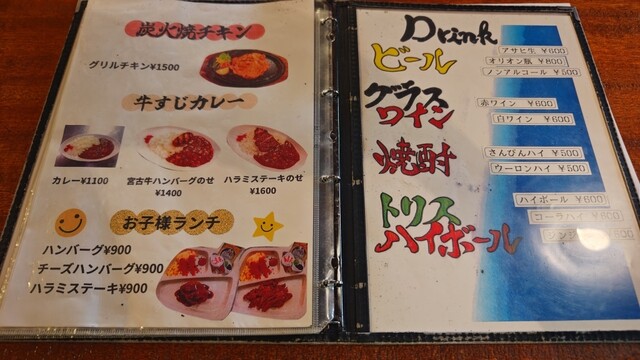 炭火焼チキン
グリルチキン¥1500
牛すじカレー
カレー¥1100
宮古牛ハンバーグのせ
¥1400
ハラミステーキのせ
¥1600
お子様ランチ
ハンバーグ¥900
チーズハンバーグ¥900
ハラミステーキ¥900
Drink
ビール
アサヒ生 ¥600
オリオン瓶 ¥800
ノンアルコール ¥500
グラス
ワイン
赤ワイン ¥600
白ワイン ¥600
焼酎
さんぴんハイ ¥500
ウーロンハイ ¥500
トリス
ハイボール
ハイボール ¥600
コーラハイ ¥600